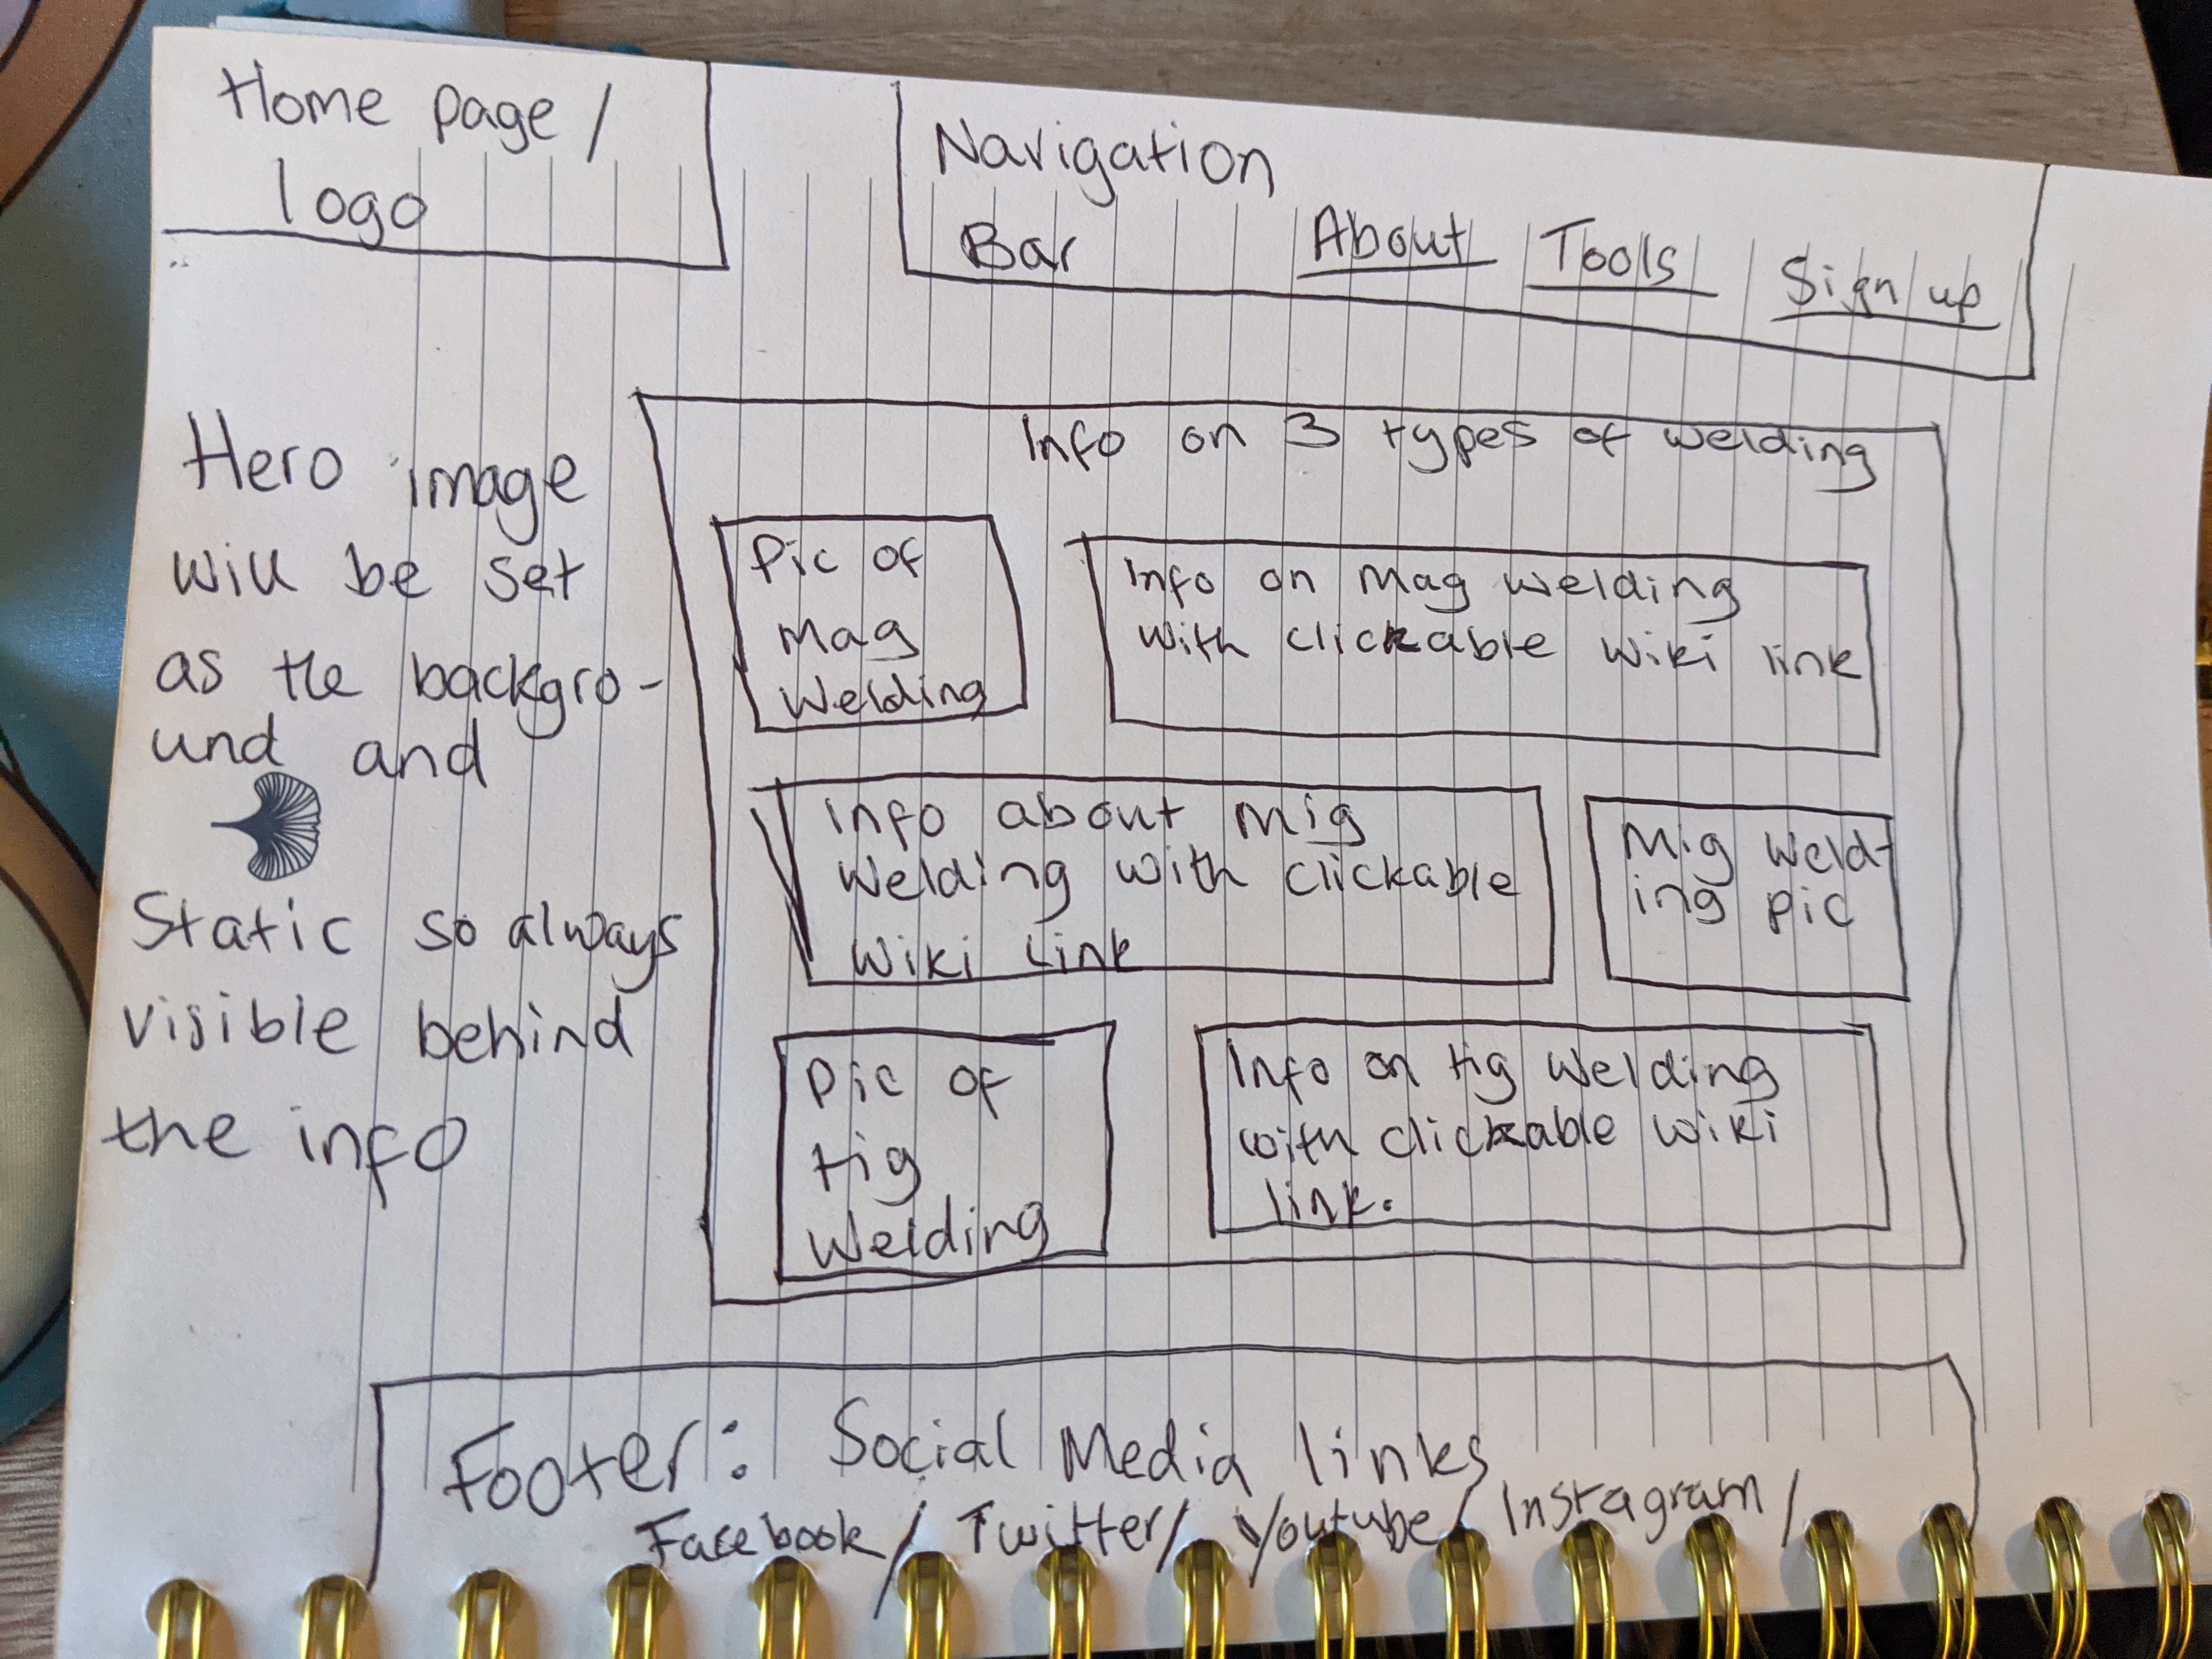 Home page /
logo
Navigation
Bar About Tools Sign up
Hero image
will be set
as the backgro-
und and
Static so always
visible behind
the info
Info on 3 types of welding
Pic of
Mag
Welding
Info on Mag welding
with clickable wiki link
Info about Mig
Welding with clickable
Wiki Link
Mig Weld-
ing pic
Pic of
tig
Welding
Info on tig welding
with clickable wiki
link.
Footer: Social Media links
Facebook / Twitter / Youtube / Instagram /